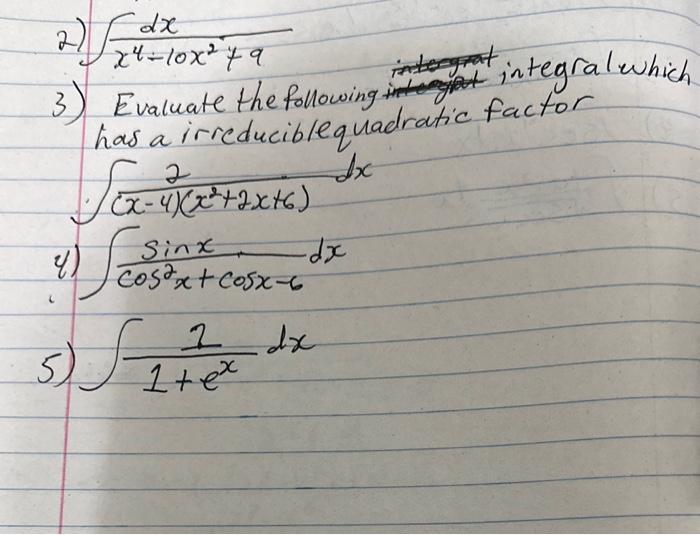 2) ∫ dx / x⁴-10x²+9
intergrat
3) Evaluate the following intergrat integral which
has a irreducible quadratic factor
∫ 2 / (x-4)(x²+2x+6) dx
4) ∫ sinx / cos²x + cosx-6 dx
5) ∫ 1 / 1+eˣ dx